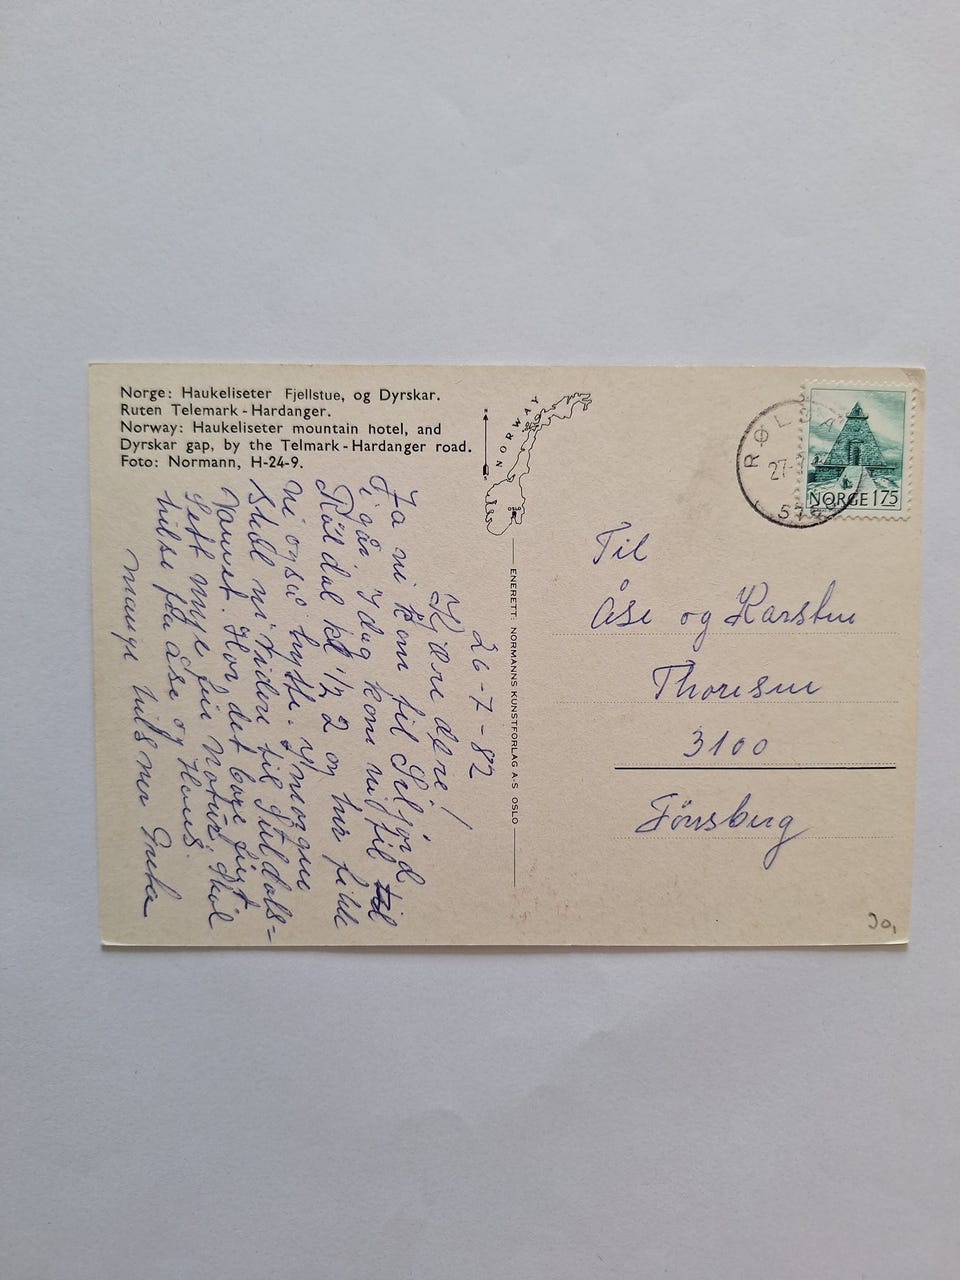 Norge: Haukeliseter Fjellstue, og Dyrskar.
Ruten Telemark - Hardanger.
Norway: Haukeliseter mountain hotel, and
Dyrskar gap, by the Telmark - Hardanger road.
Foto: Normann, H-24-9.
NORWAY
OSLO
ENERETT: NORMANNS KUNSTFORLAG A-S OSLO
RØLDAL
27-
57
NORGE 175
26-7-82
Kjære dere!
Ja vi kom til Seljord
i går. I dag kom vi til
Röldal kl ½ 2 og her fikk
vi også hytte. I morgen
skal vi videre til Suldals-
vannet. Her det bare fint
Sett mye fin natur. Skul
hilse fra Åse og Hans.
mange hilsner
Til
Åse og Karsten
Thoresen
3100
Tönsberg
30,